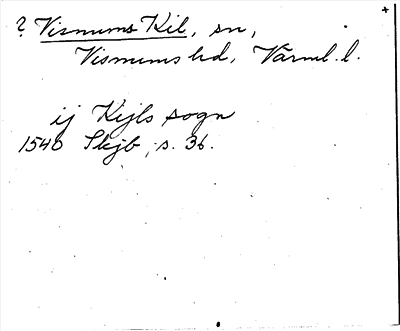 ? Visnums Kil, sn,
Visnums hd, Värml. l.
ij Kijls sogn
1540 Skjb, s. 36.